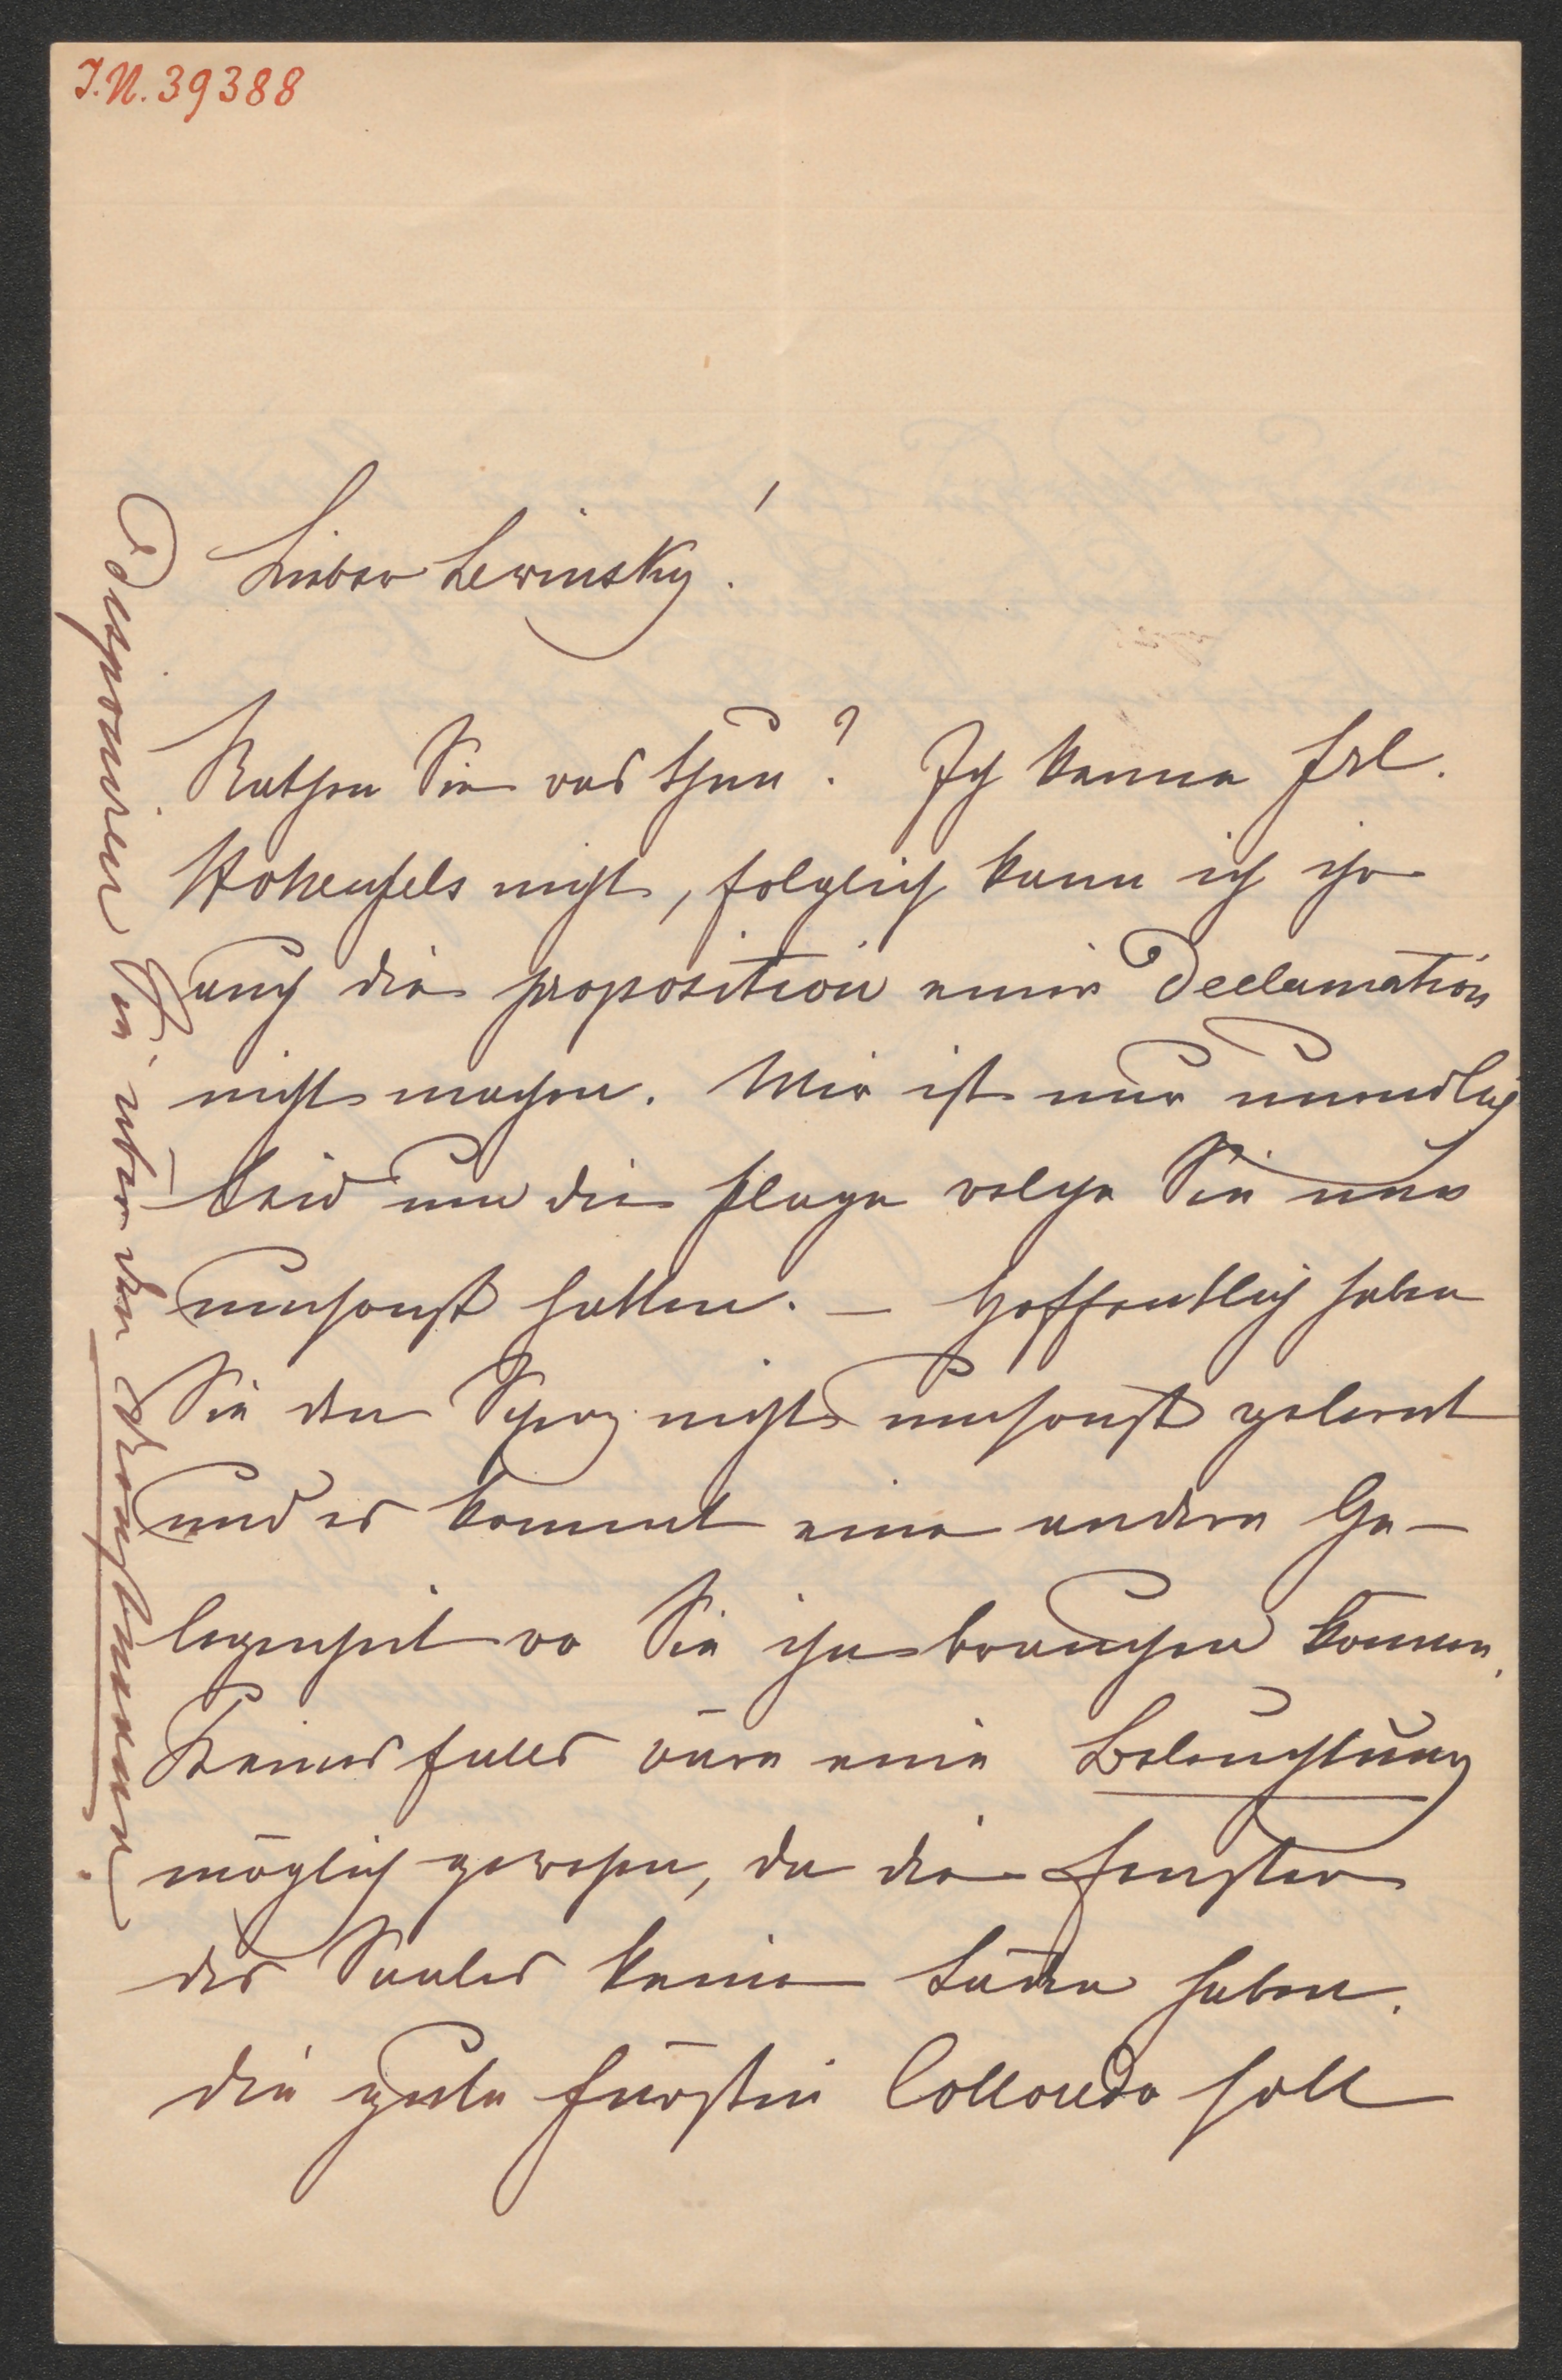 I.N. 39388
Lieber Lewinsky!
Rathen Sie was thun? Ich kenne Frl.
Hohenfels nicht, folglich kann ich ihr
auch die proposition einer Declamation
nicht machen. Mir ist nur unendlich
leid um die Plage welche Sie nun
umsonst hatten. – Hoffentlich haben
Sie den Scherz nicht umsonst gelernt
und es kommt eine andere Ge-
legenheit wo Sie ihn brauchen können.
Keinesfalls wäre eine Beleuchtung
möglich gewesen, da die Fenster
des Saales keine Läden haben.
Die gute Fürstin Colloredo soll
Disponiren Sie über den